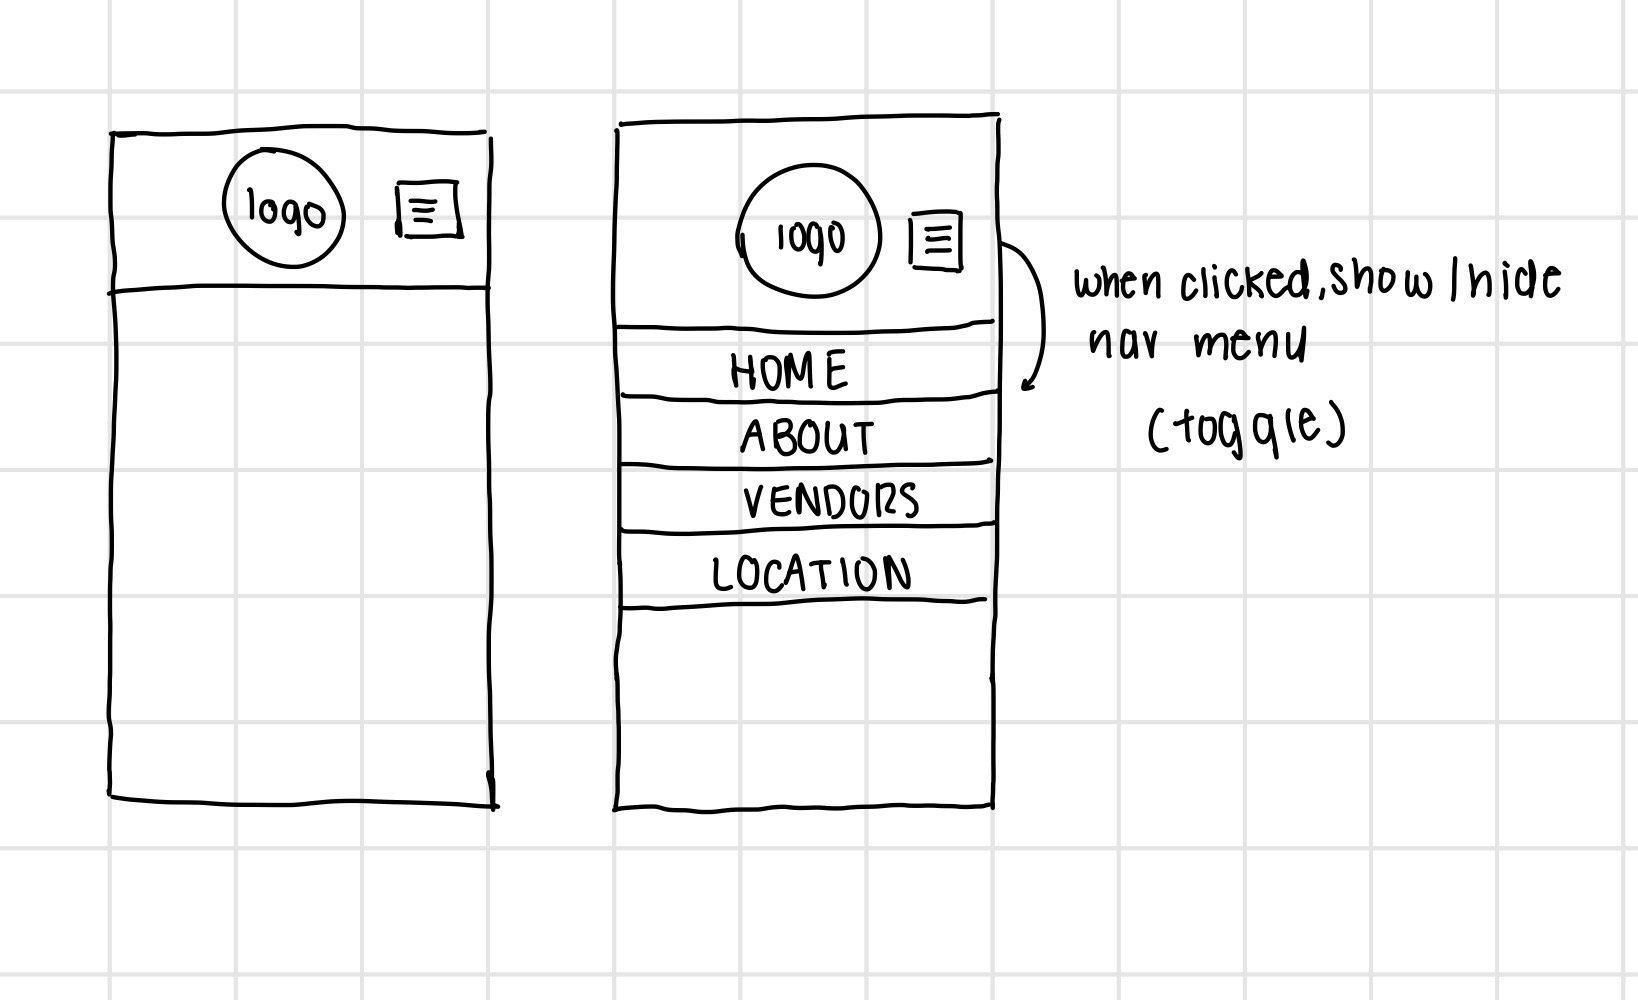 logo
logo
HOME
ABOUT
VENDORS
LOCATION
when clicked, show/hide
nav menu
(toggle)